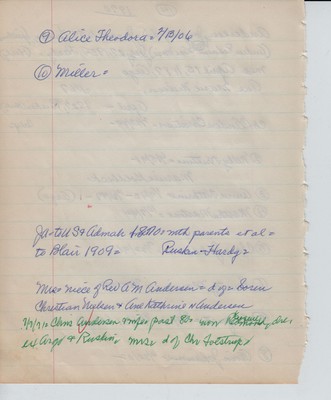 ⑨ Alice Theodora = 2/13/06
⑩ Miller =
Ja - to US & Admah 1890 = with parents et al =
to Blair 1909 = Ruskin - Hardy =
Mrs = niece of Rev A M Andersen = d g = Soren
Christian Nielsen & Ane Kathrine n Andersen
Chris Andersen & wife past 80 now
ex Argo & Ruskin, Mrs = d of Chr